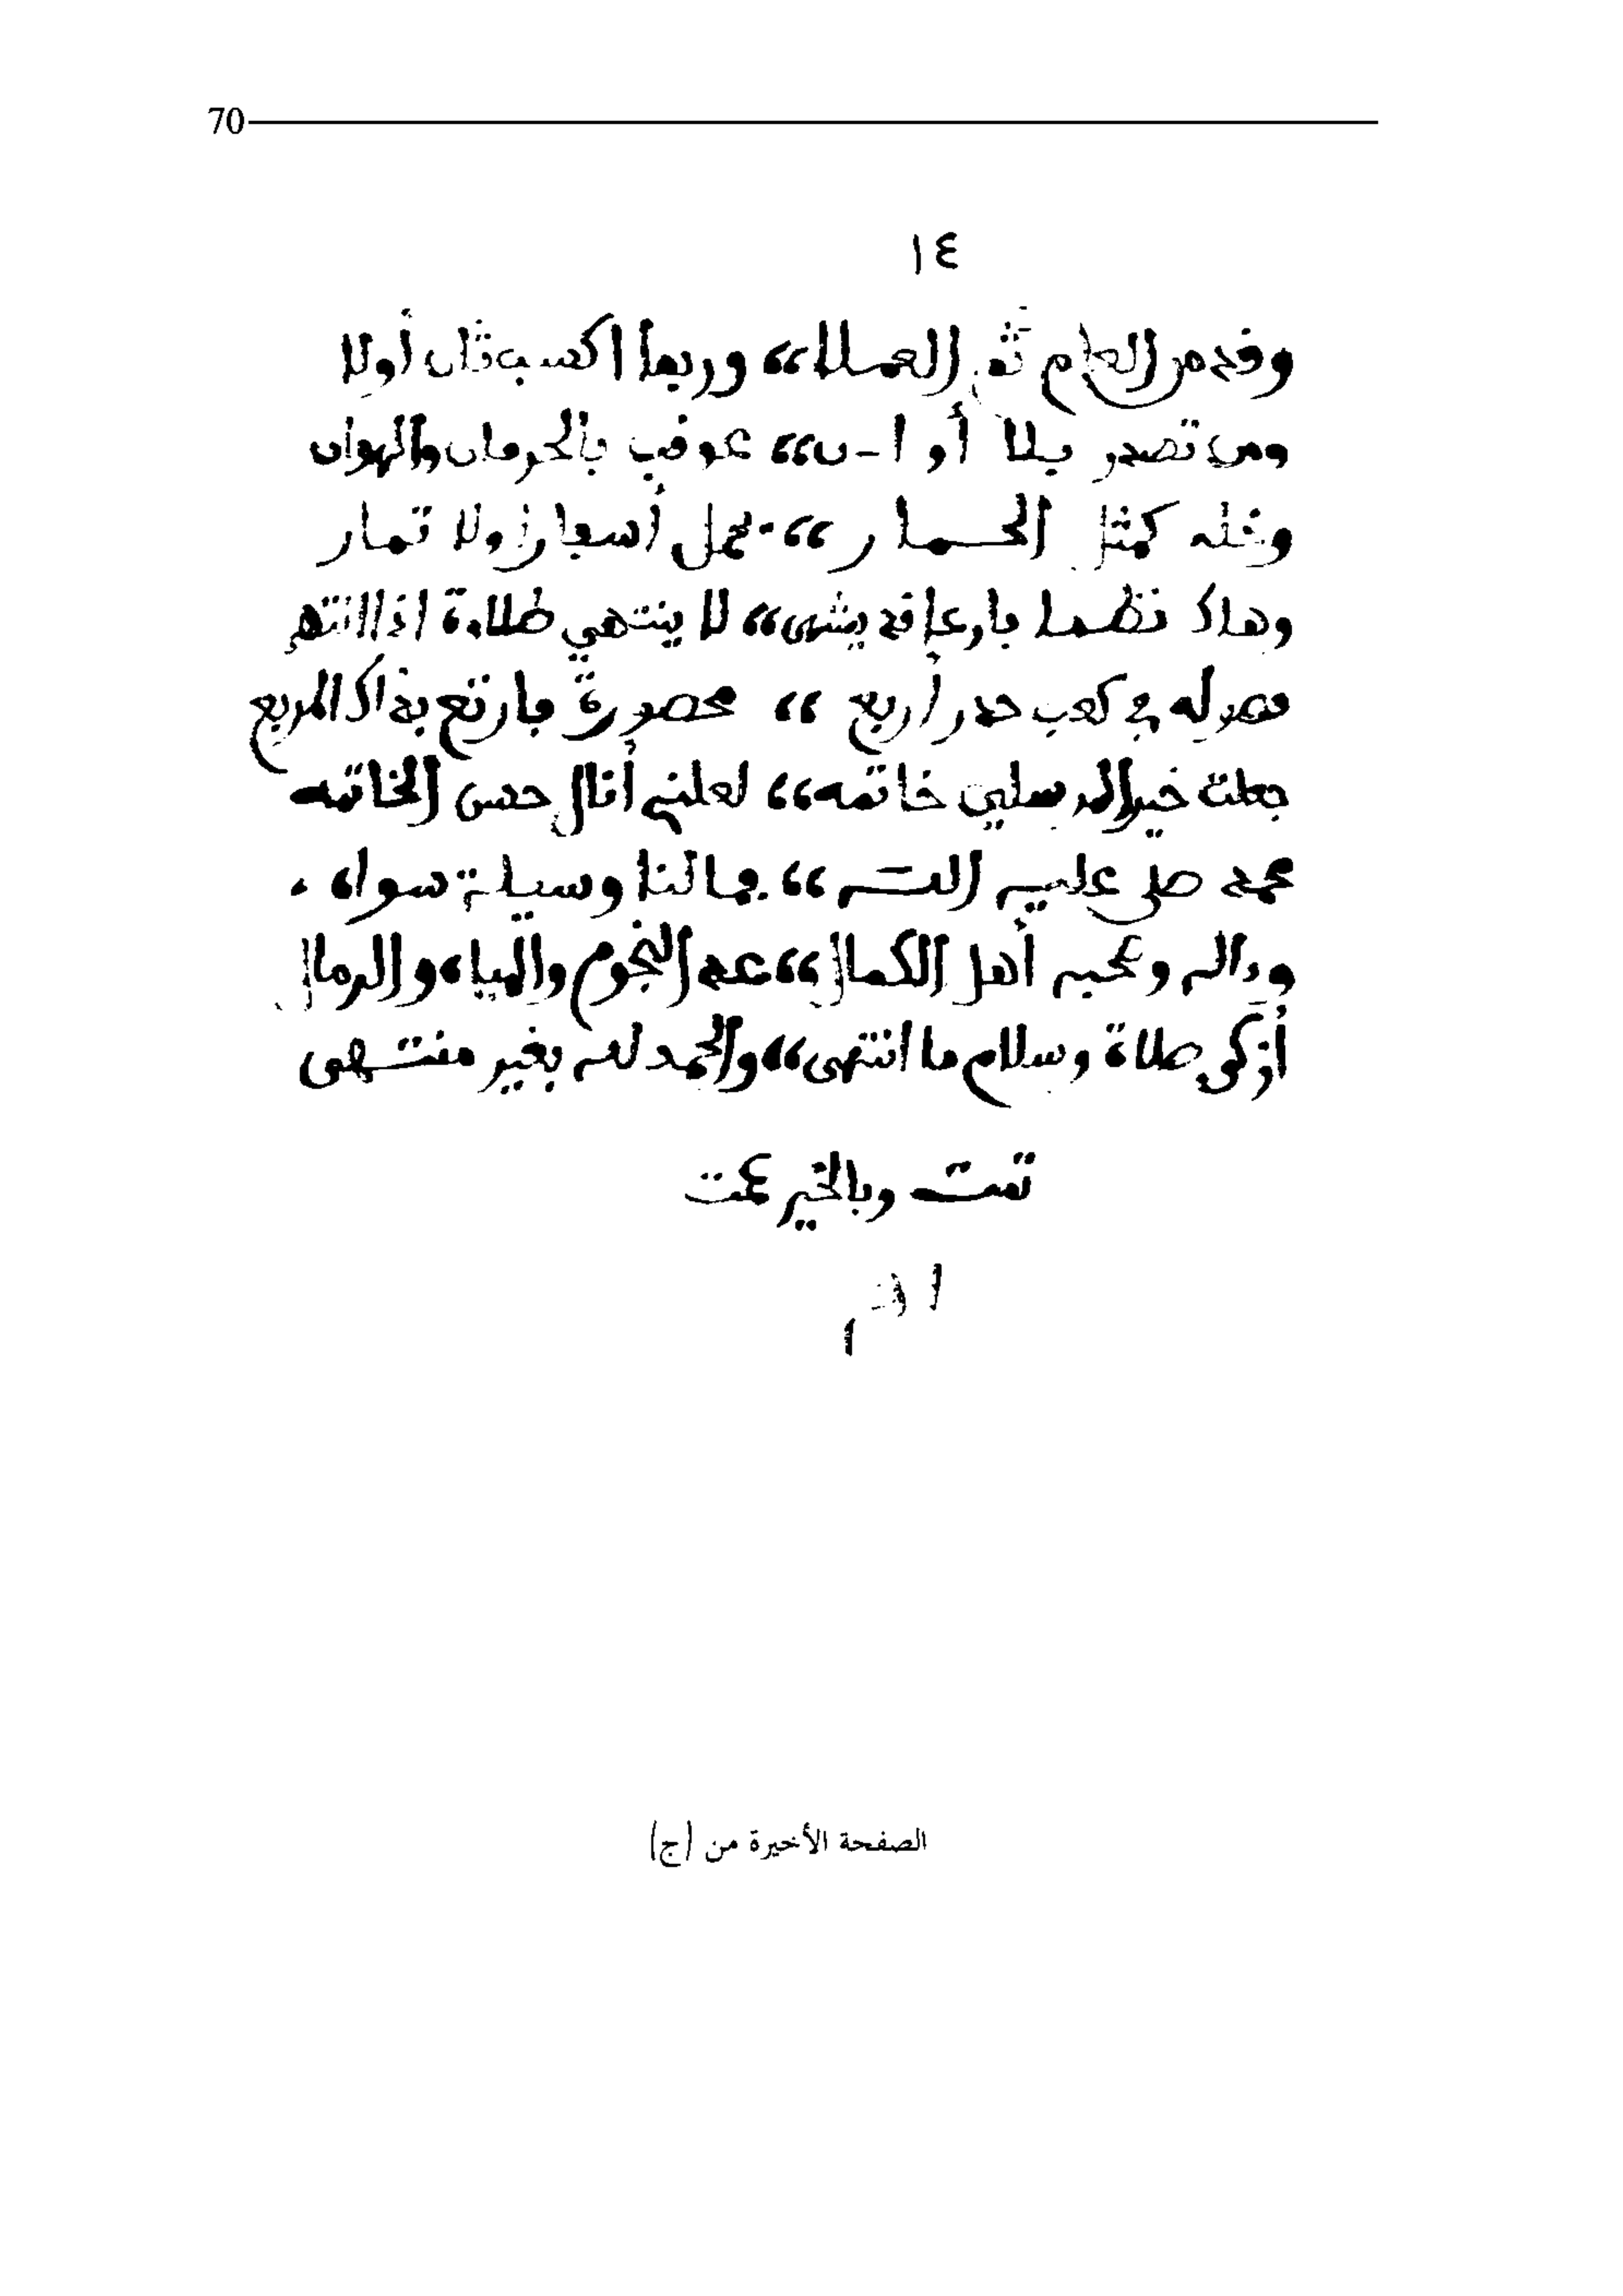 70
١٤
وقدم العلم ثم العملا ،، وربما اكتسب ثان أولا
ومن تصدر بلا أوان ،، عوقب بالحرمان والهوان
ومثله كمثل الحمار ،، يحمل أسفارا ولا تمار
وهاك نظما بارعا قد يشهى ،، لا ينتهي طلاوة اذا انتهى
فصوله في كعب حدر أربع ،، محصورة فارتع بذاك المربع
جعلت خير المرسلين خاتمه ،، لعلني أنال حسن الخاتمه
محمد صلى عليه الله ،، فما لنا وسيلة سواه
وءاله وصحبه أهل الكمال ،، عد النجوم والمياه والرمال
أزكى صلاة وسلام ما انتهى ،، والحمد لله بغير منتهى
تمت وبالخير عمت
الصفحة الأخيرة من (ج)